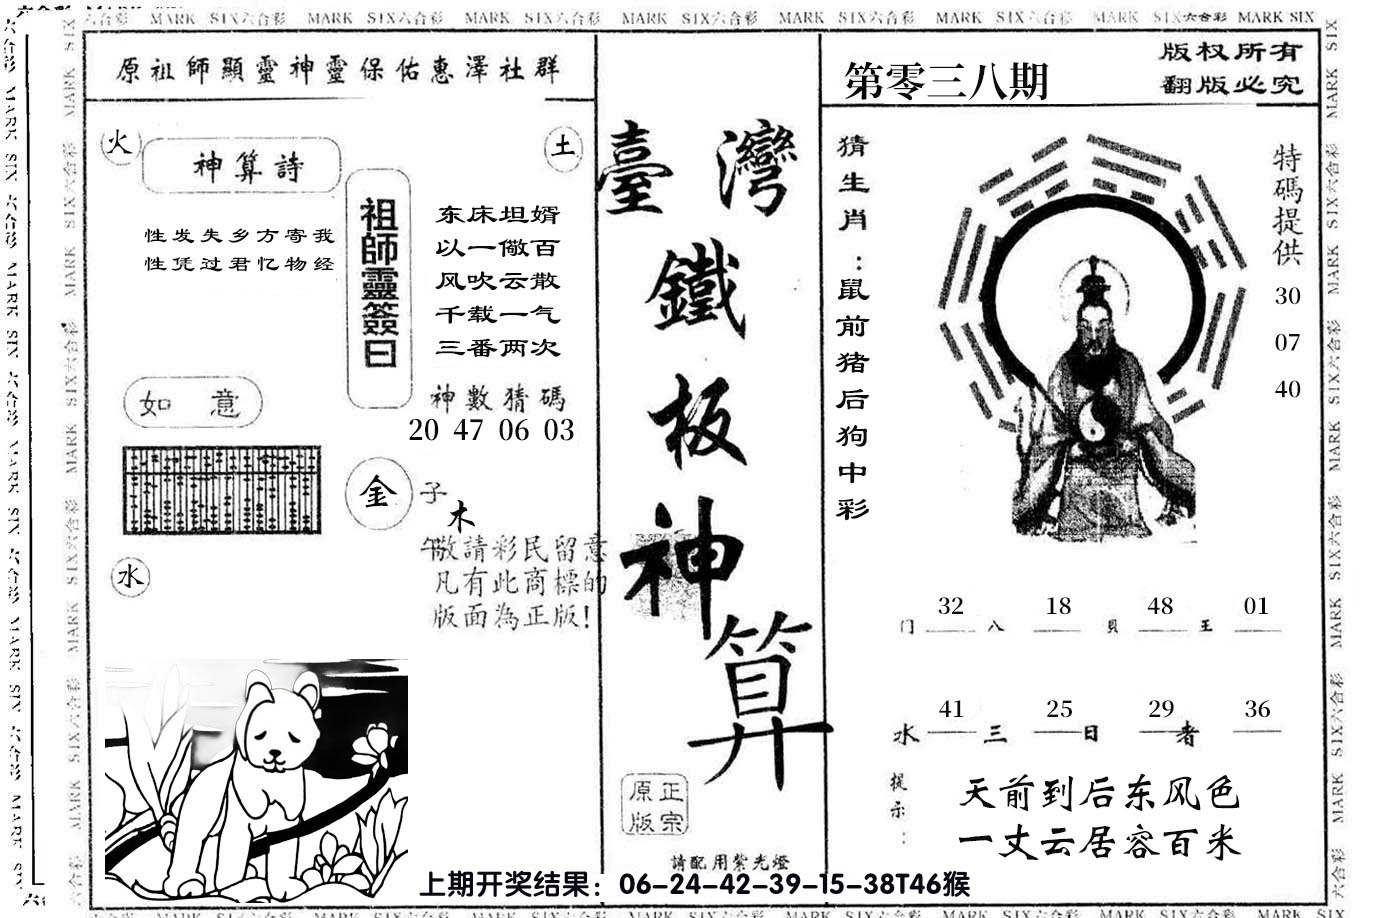 六合彩 MARK SIX六合彩 MARK SIX六合彩 MARK SIX六合彩 MARK SIX六合彩 MARK SIX六合彩 MARK SIX六合彩 MARK SIX六合彩 MARK SIX
原祖師顯靈神靈保佑惠澤社群
火
土
神算詩
性发失乡方寄我
性凭过君忆物经
祖師靈簽曰
东床坦婿
以一儆百
风吹云散
千载一气
三番两次
神數猜碼
20 47 06 03
如 意
金
子
木
午
水
敬請彩民留意
凡有此商標的
版面為正版!
臺灣
鐵
板
神
算
原正
版宗
請配用紫光燈
第零三八期
版权所有
翻版必究
猜生肖:鼠前猪后狗中彩
特碼提供
30
07
40
32 18 48 01
门 八 貝 王
41 25 29 36
水 三 日 者
提示:
天前到后东风色
一丈云居容百米
上期开奖结果：06-24-42-39-15-38T46猴